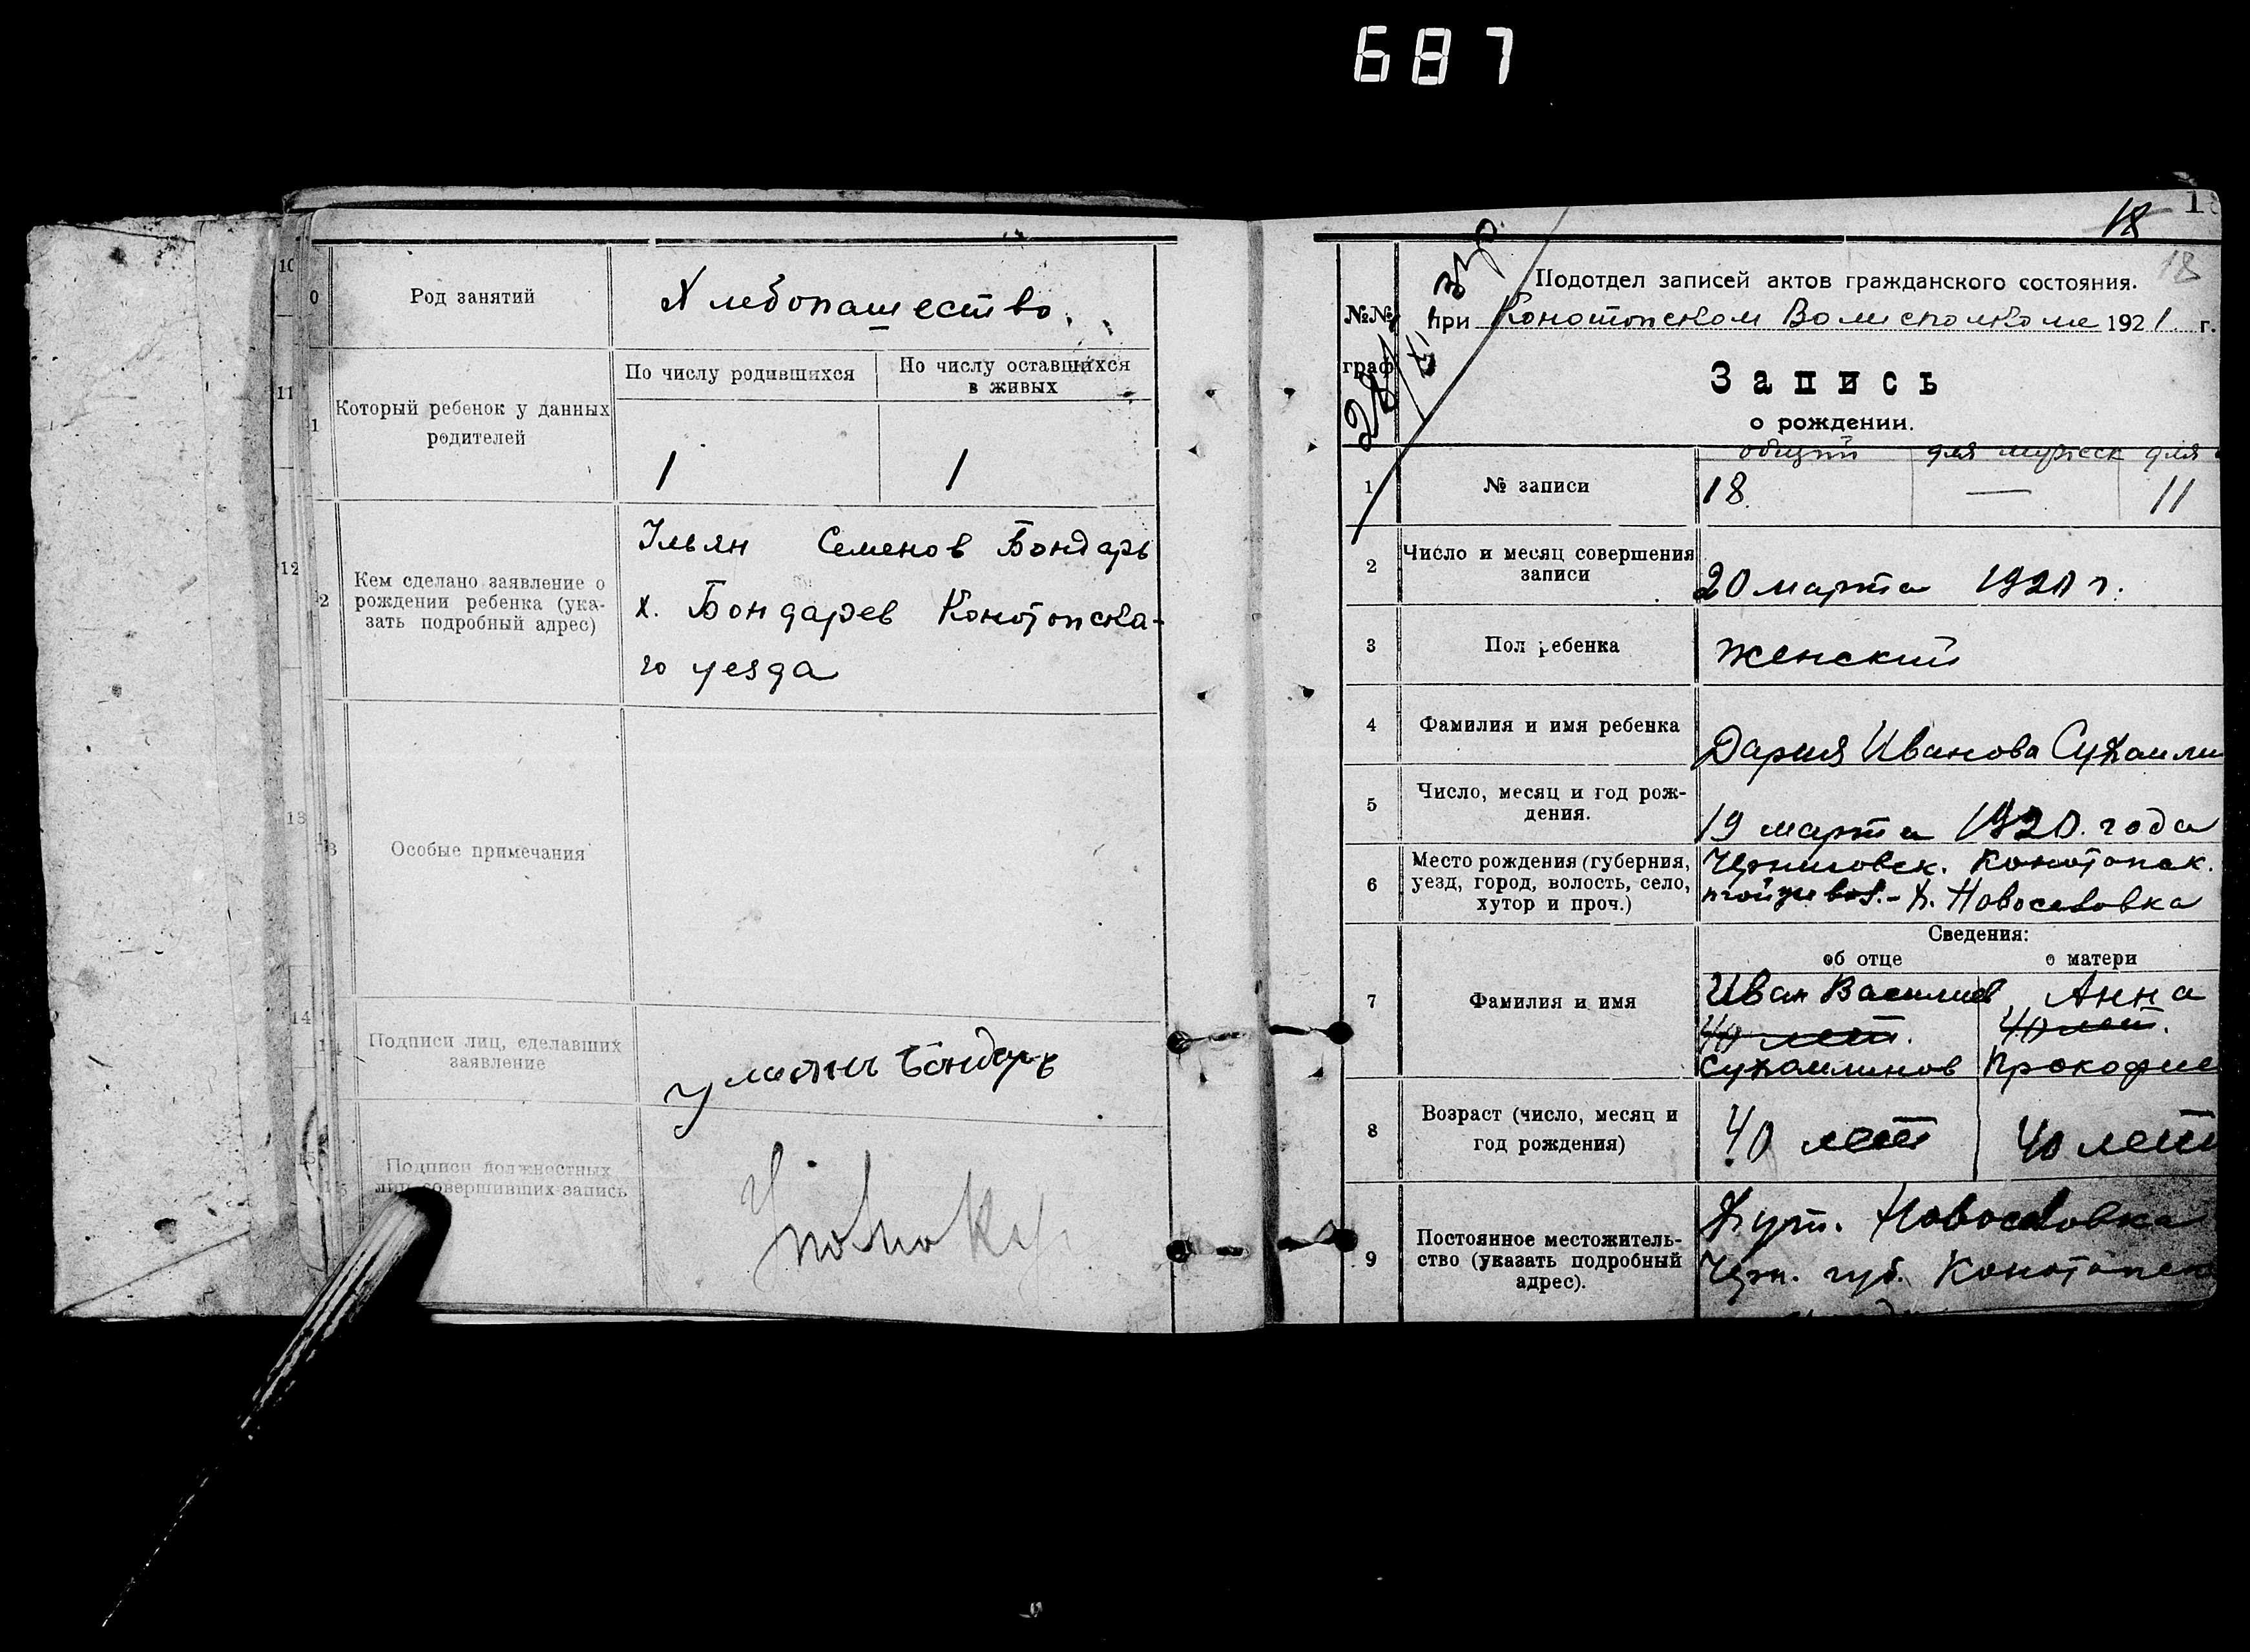 687
10
0
Род занятий
Хлебопашество.
11
1
Который ребенок у данных
родителей
По числу родившихся
По числу оставшихся
в живых
1
1
12
2
Кем сделано заявление о
рождении ребенка (ука-
зать подробный адрес)
Ульян Семенов Бондарь
х. Бондарев Конотопска-
го уезда
13
3
Особые примечания
14
Подписи лиц, сделавших
заявление
Улиянъ Бондарь
15
Подписи должностных
лиц совершивших запись
18
18
№№
граф
Подотдел записей актов гражданского состояния.
при Конотопском Волисполкоме 1921 г.
Запись
о рождении.
1
№ записи
общий для мужеск для
18. — 11
2
Число и месяц совершения
записи
20 марта 1920 г.
3
Пол ребенка
женский
4
Фамилия и имя ребенка
Дария Иванова Сухомли
5
Число, месяц и год рож-
дения.
19 марта 1920. года
6
Место рождения (губерния,
уезд, город, волость, село,
хутор и проч.)
Черниговск. Конотопск.
х. Новоселовка
Сведения:
об отце
о матери
7
Фамилия и имя
Иван Василиев
40 лет.
Сухомлинов
Анна
40 лет.
Прокофие
8
Возраст (число, месяц и
год рождения)
40 лет
40 лет
9
Постоянное местожитель-
ство (указать подробный
адрес).
Хут. Новоселовка
Черн. губ. Конотопск